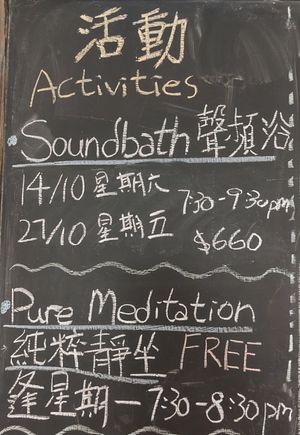 活動
Activities
Soundbath 聲頻浴
14/10 星期六 7:30-9:30pm
27/10 星期五 $660
Pure Meditation
純粹靜坐 FREE
逢星期一 7:30-8:30pm